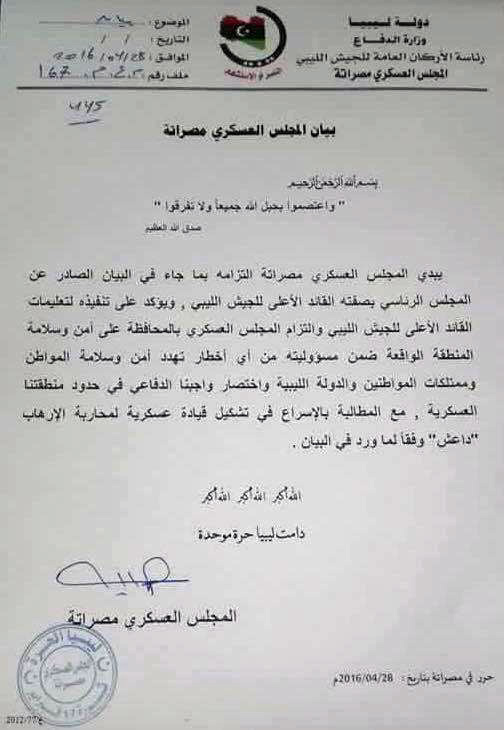 دولة ليبيا
وزارة الدفاع
رئاسة الأركان العامة للجيش الليبي
المجلس العسكري مصراتة
الموضوع:
التاريخ: / /
الموافق: 2016/04/28
ملف رقم: م.ع.م. 167
بيان المجلس العسكري مصراتة
بسم الله الرحمن الرحيم
" واعتصموا بحبل الله جميعاً ولا تفرقوا "
صدق الله العظيم
يبدي المجلس العسكري مصراتة التزامه بما جاء في البيان الصادر عن
المجلس الرئاسي بصفته القائد الأعلى للجيش الليبي , ويؤكد على تنفيذه لتعليمات
القائد الأعلى للجيش الليبي والتزام المجلس العسكري بالمحافظة على أمن وسلامة
المنطقة الواقعة ضمن مسؤوليته من أي أخطار تهدد أمن وسلامة المواطن
وممتلكات المواطنين والدولة الليبية واختصار واجبنا الدفاعي في حدود منطقتنا
العسكرية , مع المطالبة بالإسراع في تشكيل قيادة عسكرية لمحاربة الإرهاب
"داعش" وفقاً لما ورد في البيان .
الله أكبر الله أكبر الله أكبر
دامت ليبيا حرة موحدة
المجلس العسكري مصراتة
ليبيا الحرة
المجلس العسكري
مصراتة
ثورة 17 فبراير
حرر في مصراتة بتاريخ: 2016/04/28م